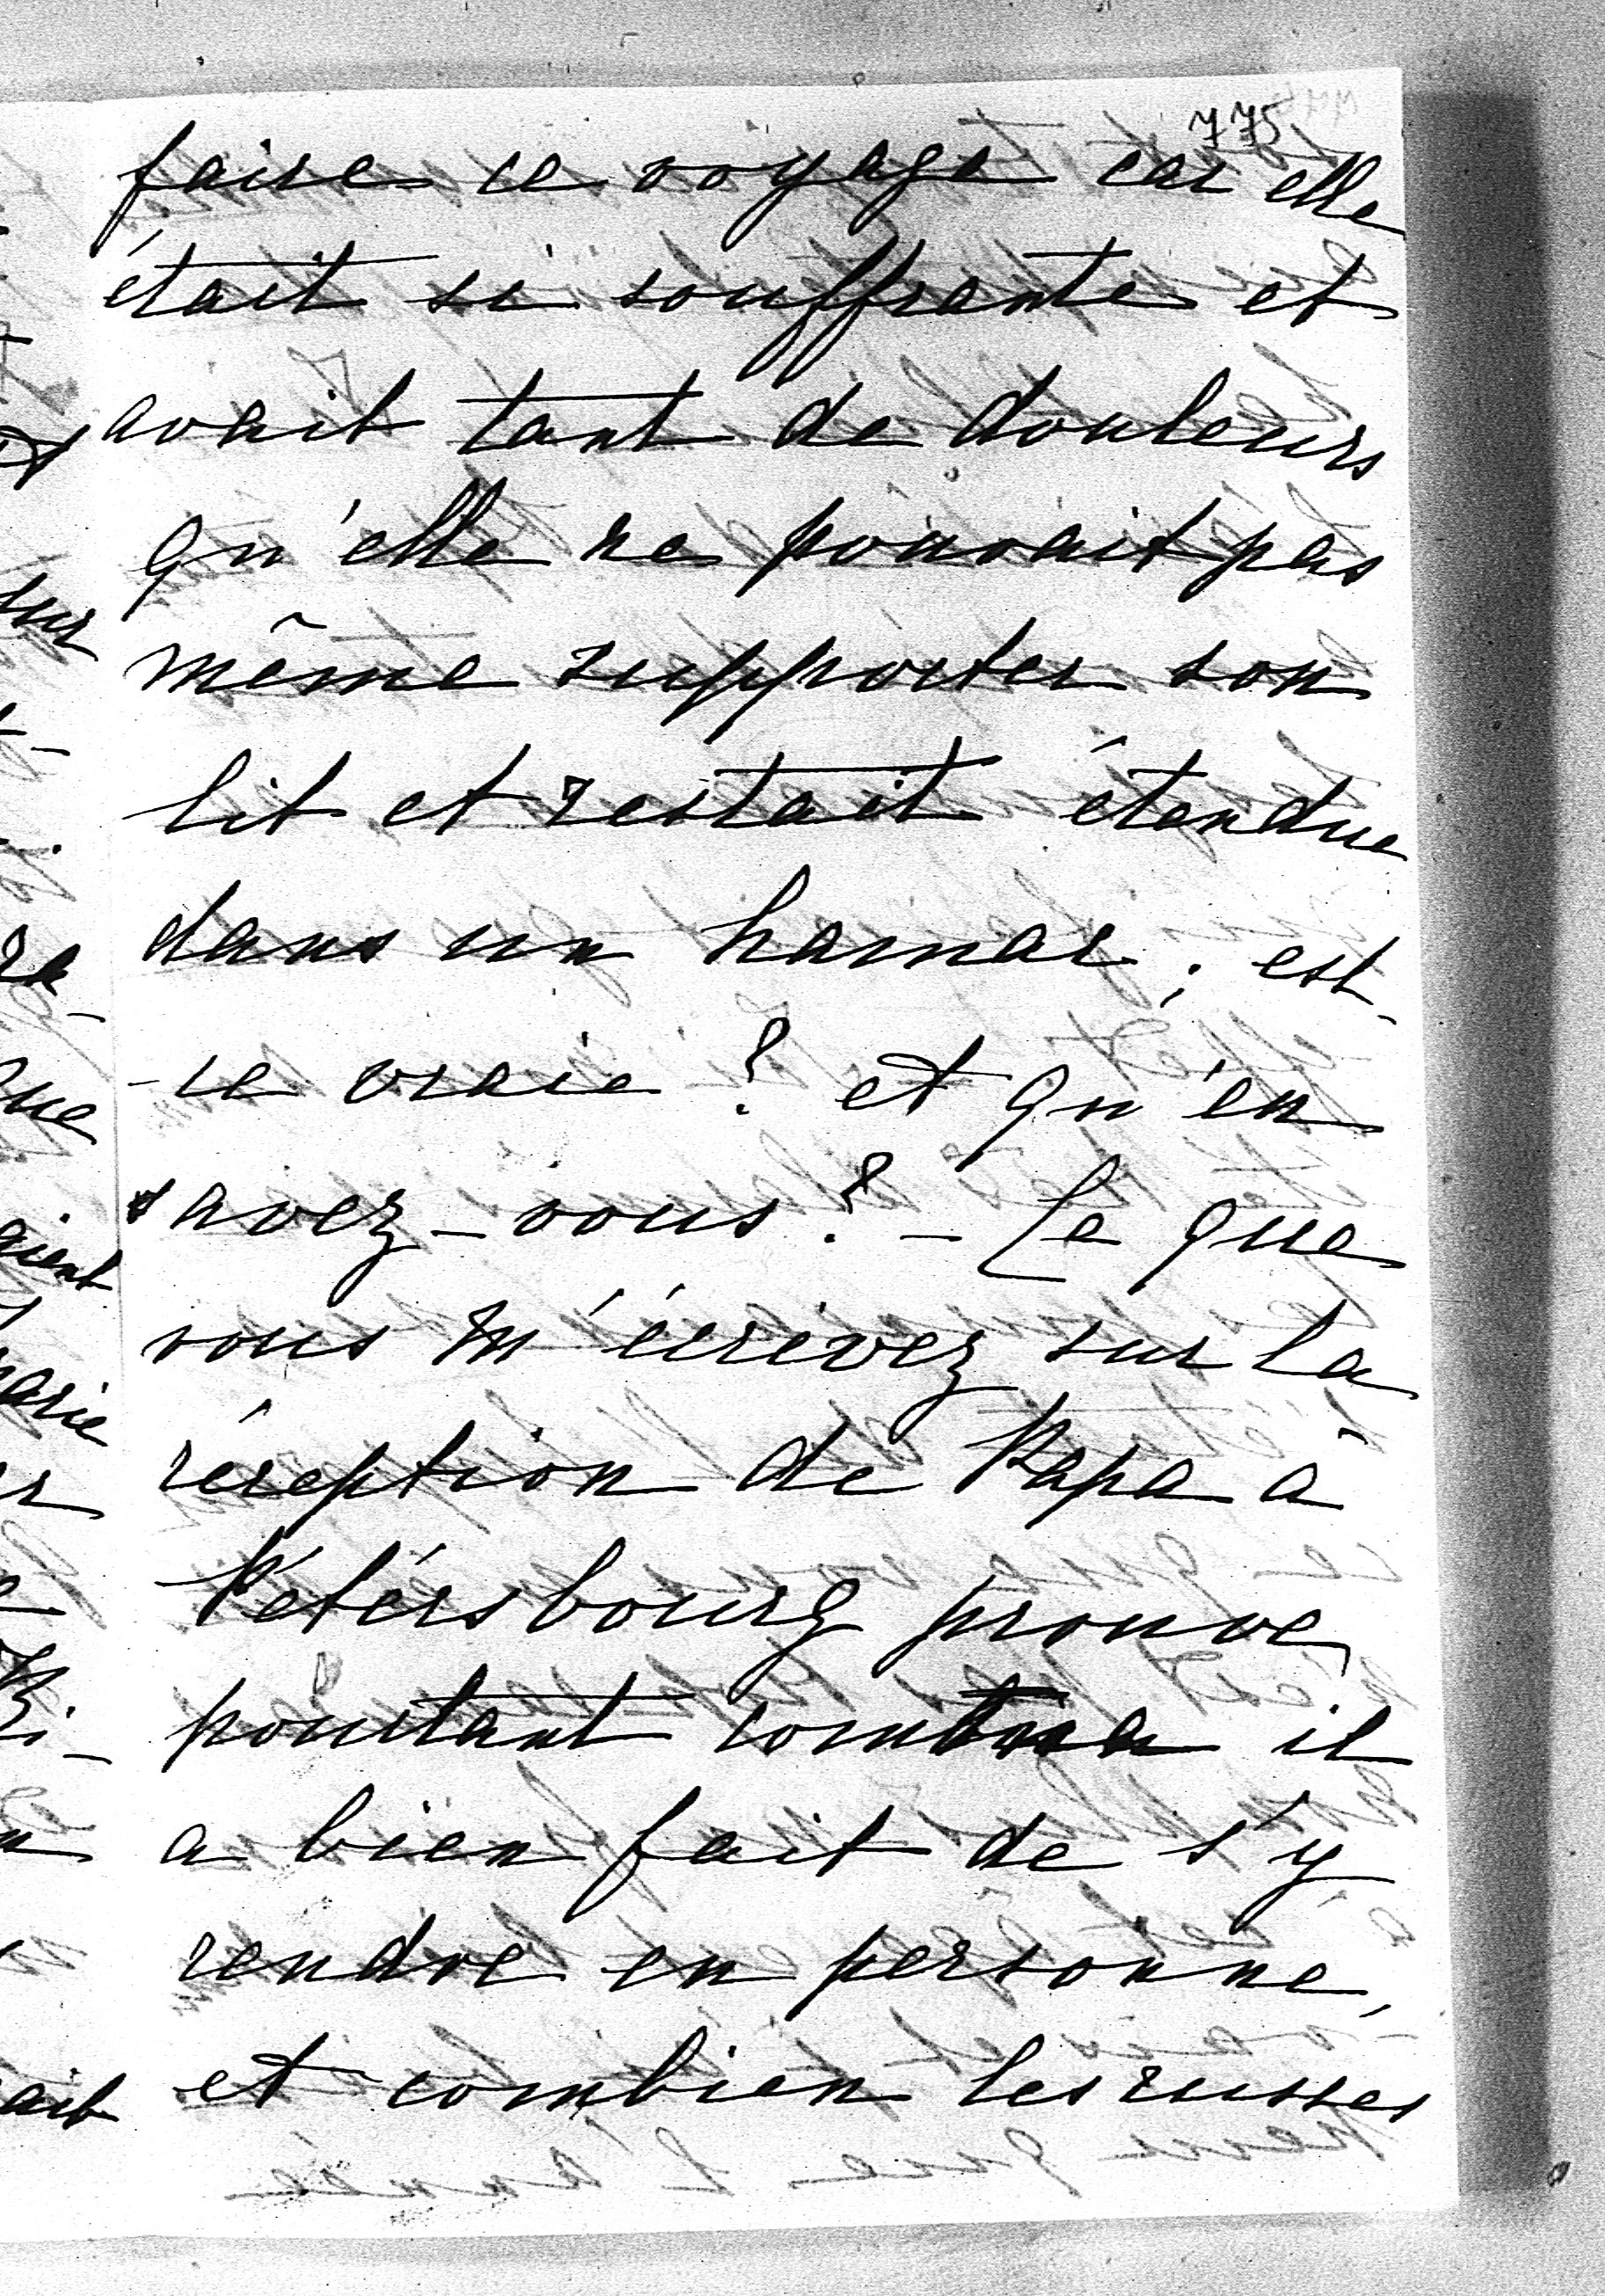 775
faire ce voyage car elle
était si souffrante et
avait tant de douleurs
qu'elle ne pouvait pas
même supporter son
lit et restait étendue
dans un hamac; est-
-ce vraie? et qu'en
savez-vous? — Ce que
vous m'écrivez sur la
réception de Papa à
Pétersbourg prouve
pourtant combien il
a bien fait de s'y
rendre en personne,
et combien les russes